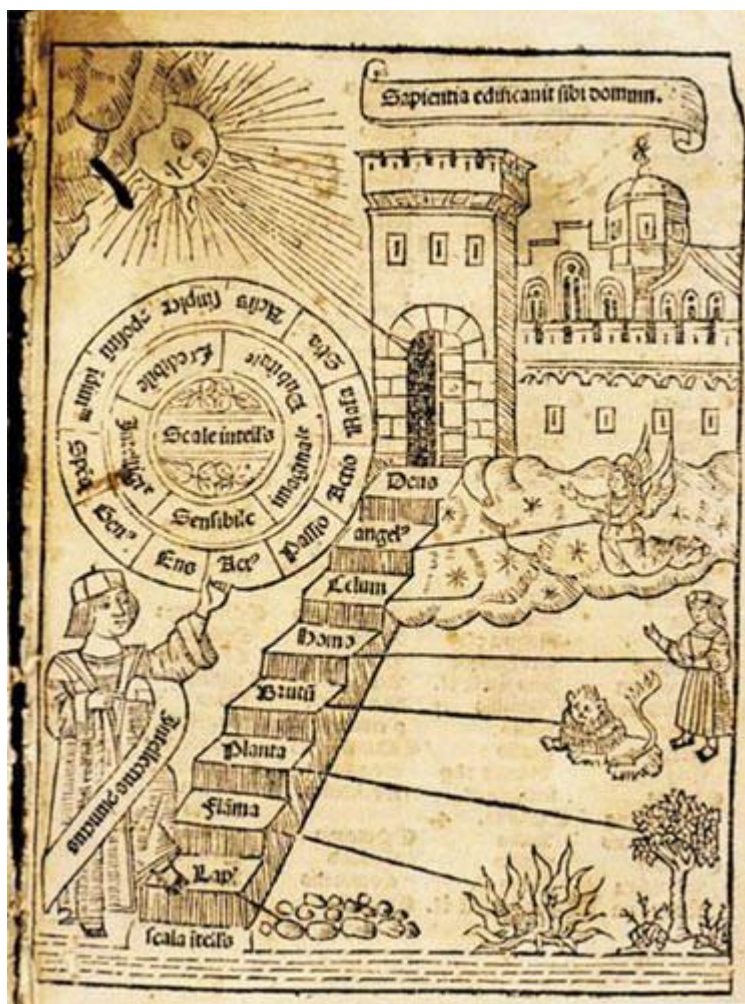 Sapientia edificauit sibi domum.
Scale intell'o
Sensibile
imaginale
Dubitale
Credibile
Accn̄s
Passio
Actio
Nata
Sb̄a
Actus
simplex
Ens
Deus
angel'
Celum
Homo
Brutū
Planta
Flāma
Lap'
scala itell'o
Intellectus 2iunctus